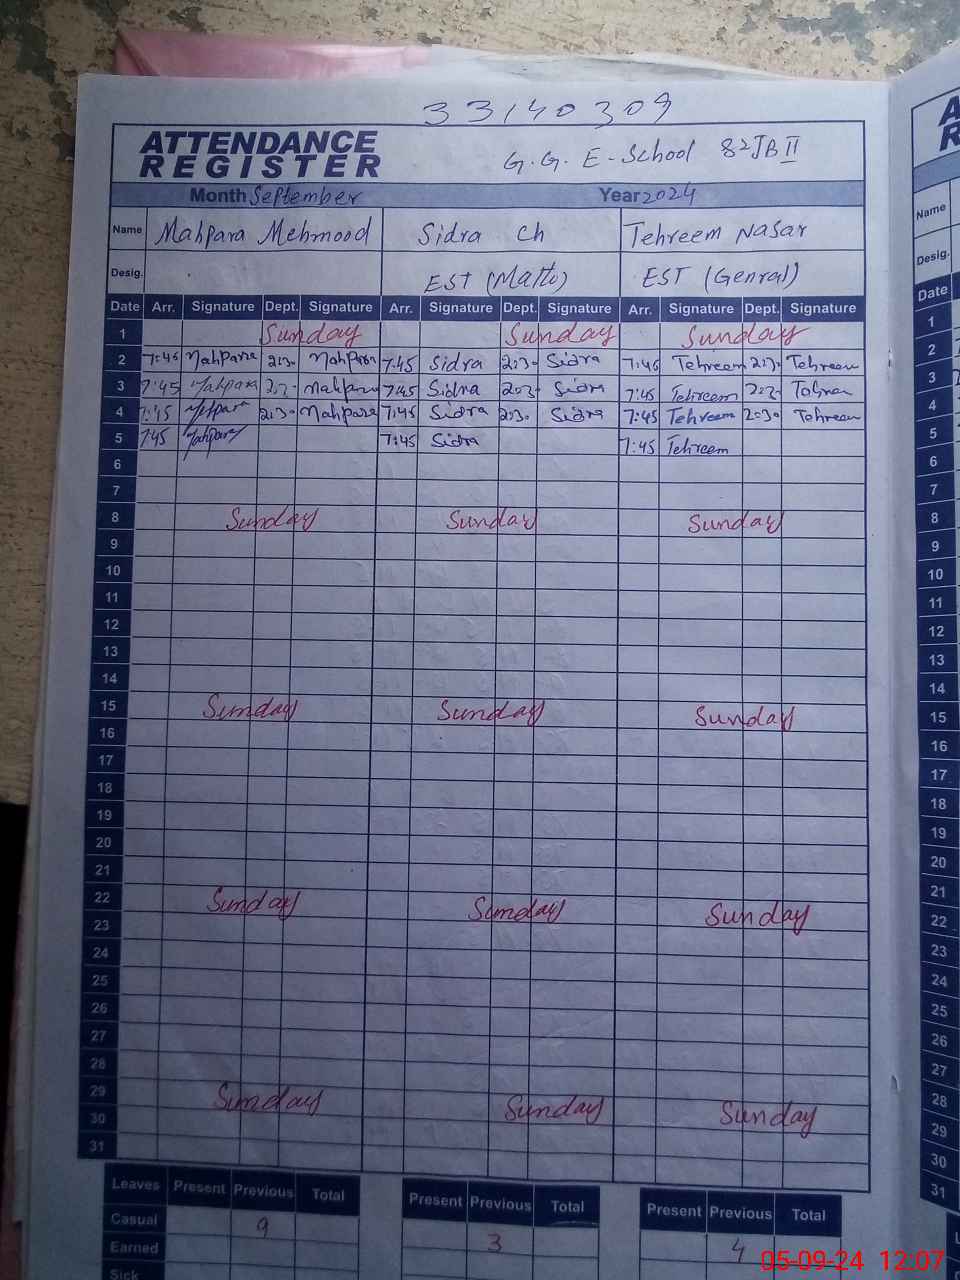 33140309
ATTENDANCE
REGISTER
G.G. E-School 82 JB II
Month September Year 2024
Name Mahpara Mehmood Sidra Ch Tehreem Nasar
Desig. EST (Math) EST (Genral)
Date Arr. Signature Dept. Signature Arr. Signature Dept. Signature Arr. Signature Dept. Signature
1 Sunday Sunday Sunday
2 7:45 Mahpara 2:30 Mahpara 7:45 Sidra 2:30 Sidra 7:45 Tehreem 2:30 Tehreem
3 7:45 Mahpara 2:30 Mahpara 7:45 Sidra 2:30 Sidra 7:45 Tehreem 2:30 Tehreem
4 7:45 Mahpara 2:30 Mahpara 7:45 Sidra 2:30 Sidra 7:45 Tehreem 2:30 Tehreem
5 7:45 Mahpara 7:45 Sidra 7:45 Tehreem
6
7
8 Sunday Sunday Sunday
9
10
11
12
13
14
15 Sunday Sunday Sunday
16
17
18
19
20
21
22 Sunday Sunday Sunday
23
24
25
26
27
28
29 Sunday Sunday Sunday
30
31
Leaves Present Previous Total Present Previous Total Present Previous Total
Casual 9 3 4
Earned
Sick
Name
Desig.
Date
1
2
3
4
5
6
7
8
9
10
11
12
13
14
15
16
17
18
19
20
21
22
23
24
25
26
27
28
29
30
31
05-09-24 12:07